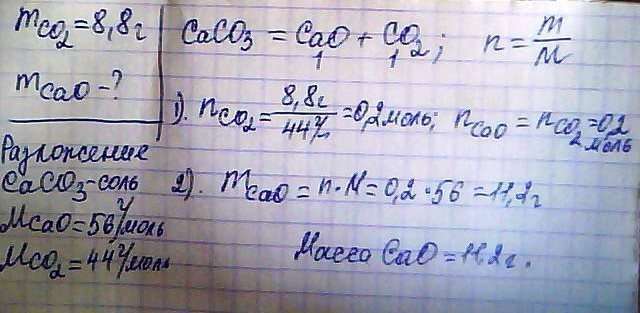 mCO₂=8,8г
mCaO-?
Разложение
CaCO₃-соль
MCaO=56г/моль
MCO₂=44г/моль
CaCO₃ = CaO + CO₂; n = m/M
1 1
1). nCO₂ = 8,8г/44г/ = 0,2моль; nCaO = nCO₂ = 0,2 моль
2). mCaO = n·M = 0,2·56 = 11,2г
Масса CaO = 11.2г.